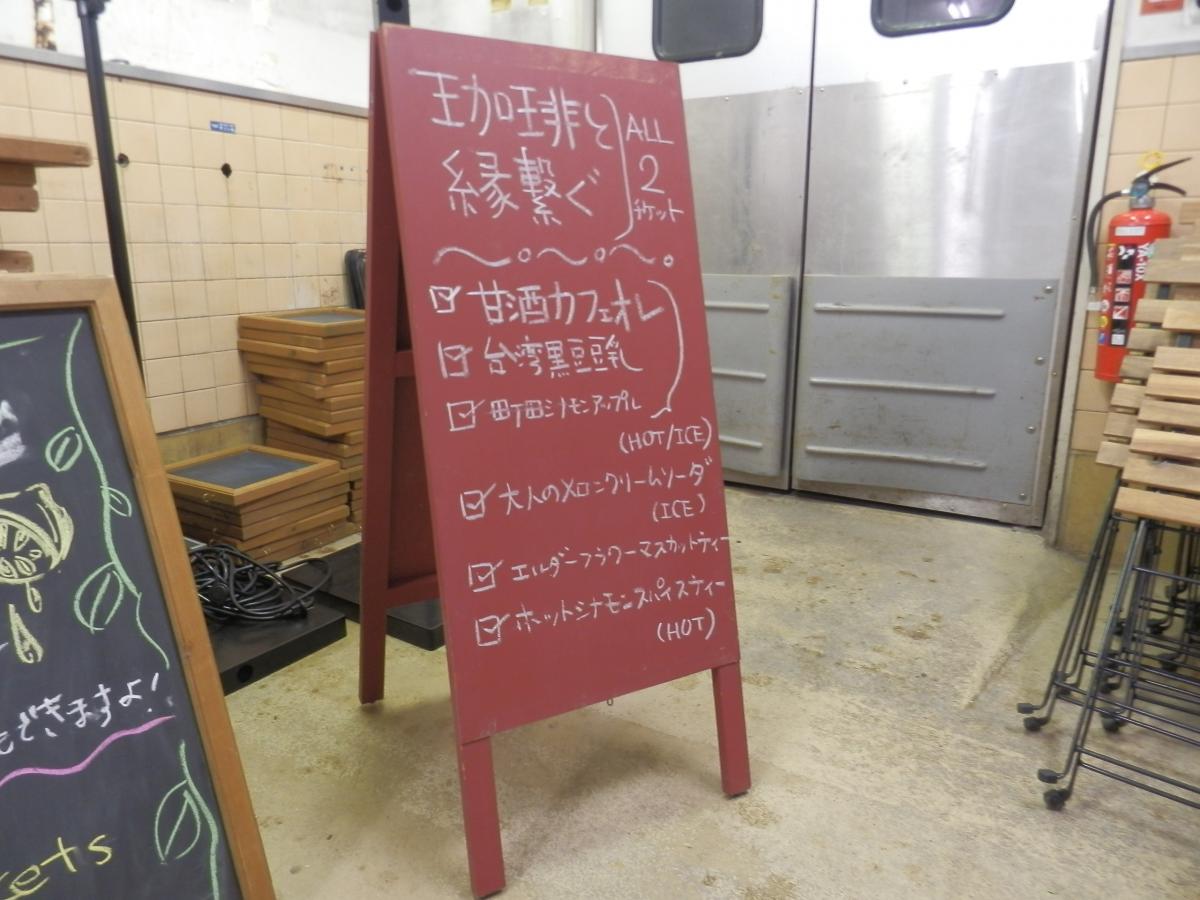 珈琲と
縁繋ぐ
ALL
2
チケット
甘酒カフェオレ
台湾黒豆豆乳
町田シナモンアップル
(HOT/ICE)
大人のメロンクリームソーダ
(ICE)
エルダーフラワーマスカットティー
ホットシナモンスパイスティー
(HOT)
できますよ!
ets
YA-10X